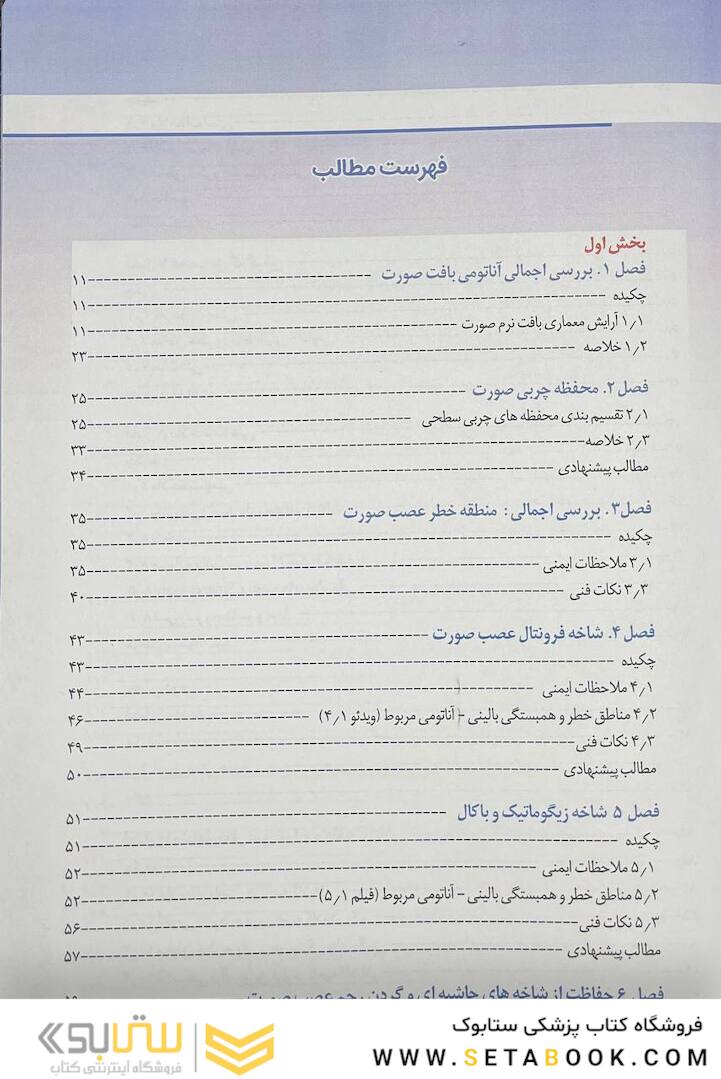 فهرست مطالب
بخش اول
فصل ۱. بررسی اجمالی آناتومی بافت صورت ۱۱
چکیده ۱۱
۱٫۱ آرایش معماری بافت نرم صورت ۱۱
۱٫۲ خلاصه ۲۳
فصل ۲. محفظه چربی صورت ۲۵
۲٫۱ تقسیم بندی محفظه های چربی سطحی ۲۵
۲٫۳ خلاصه ۳۳
مطالب پیشنهادی ۳۴
فصل۳. بررسی اجمالی: منطقه خطر عصب صورت ۳۵
چکیده ۳۵
۳٫۱ ملاحظات ایمنی ۳۵
۳٫۳ نکات فنی ۴۰
فصل ۴. شاخه فرونتال عصب صورت ۴۳
چکیده ۴۳
۴٫۱ ملاحظات ایمنی ۴۴
۴٫۲ مناطق خطر و همبستگی بالینی - آناتومی مربوط (ویدئو ۴٫۱) ۴۶
۴٫۳ نکات فنی ۴۹
مطالب پیشنهادی ۵۰
فصل ۵ شاخه زیگوماتیک و باکال ۵۱
چکیده ۵۱
۵٫۱ ملاحظات ایمنی ۵۲
۵٫۲ مناطق خطر و همبستگی بالینی - آناتومی مربوط (فیلم ۵٫۱) ۵۲
۵٫۳ نکات فنی ۵۶
مطالب پیشنهادی ۵۷
فصل ۶ حفاظت از شاخه های حاشیه ای و گردن عصب صورت
فروشگاه کتاب پزشکی ستابوک
WWW.SETABOOK.COM
ستابوک
فروشگاه اینترنتی کتاب